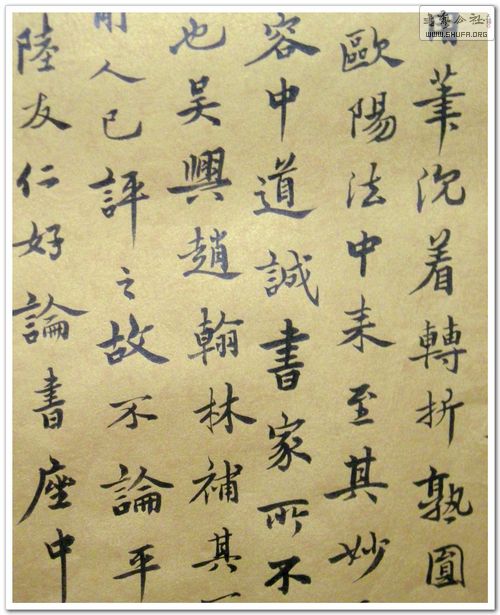 用筆沉着轉折熟圓
歐陽法中来至其妙
容中道誠書家所不
也吴興趙翰林補其
前人已評之故不論平
陸友仁好論書座中
公社
WWW.SHUFA.ORG